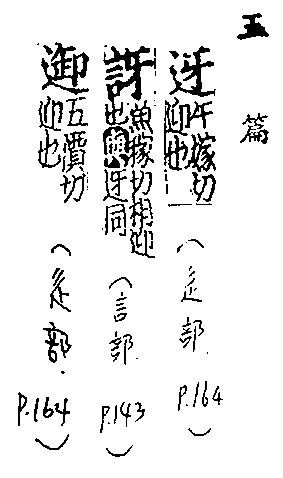 玉篇
迓
午嫁切
迎也
(辵部. P.164)
訝
魚嫁切相迎
也與迓同
(言部. P.143)
五價切
迎也
(辵部. P.164)